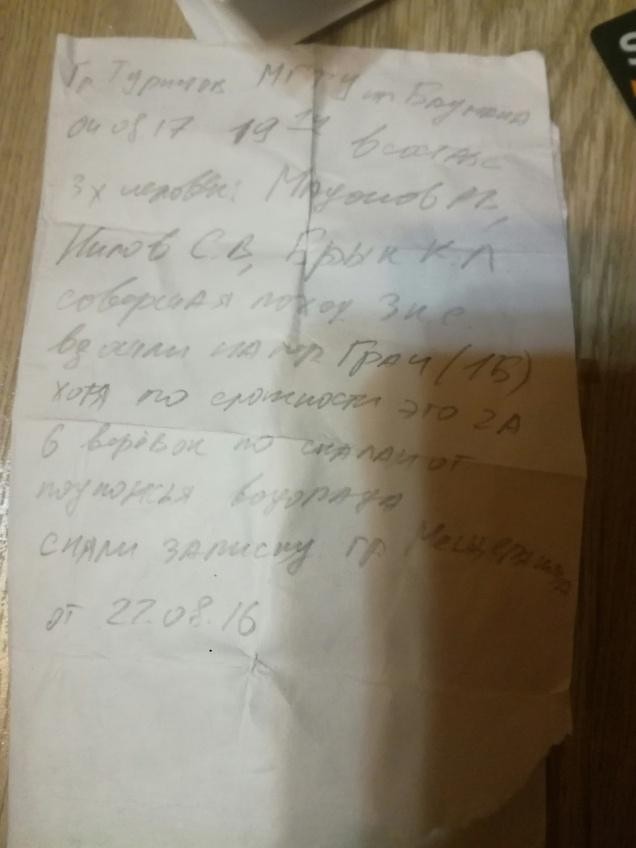 Гр Туристов МГТУ им Баумана
04 08 17 19 14 в составе
3х человек:
Нилов С.В, Брык К.Л
совершая поход 3 к с
взошли на пер Грач (1Б)
хотя по сложности это 2А
6 верёвок по скалам от
подножья водопада
сняли записку гр Мещерякова
от 22.08.16